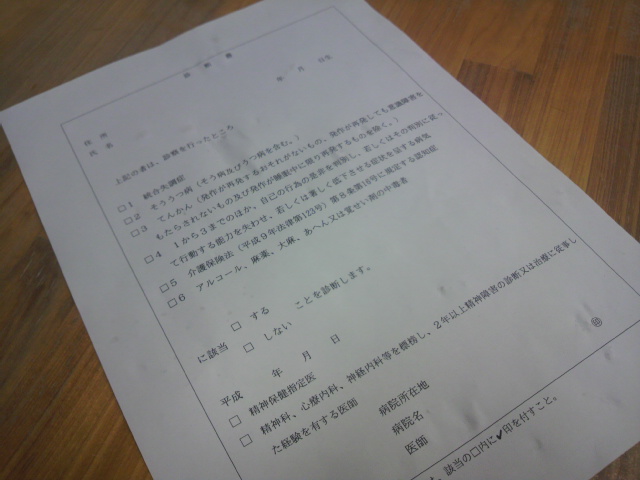 診断書
年 月 日生
住所
氏名
上記の者は、診察を行ったところ
□1 統合失調症
□2 そううつ病（そう病及びうつ病を含む。）
□3 てんかん（発作が再発するおそれがないもの、発作が再発しても意識障害を
もたらされないもの及び発作が睡眠中に限り再発するものを除く。）
□4 1から3までのほか、自己の行為の是非を判別し、若しくはその判別に従っ
て行動する能力を失わせ、若しくは著しく低下させる症状を呈する病気
□5 介護保険法（平成9年法律第123号）第8条第16号に規定する認知症
□6 アルコール、麻薬、大麻、あへん又は覚せい剤の中毒者
□ する
に該当 ことを診断します。
□ しない
平成 年 月 日
□ 精神保健指定医
□ 精神科、心療内科、神経内科等を標榜し、2年以上精神障害の診断又は治療に従事し
た経験を有する医師
病院所在地
病院名
医師 ㊞
該当の□内に✓印を付すこと。